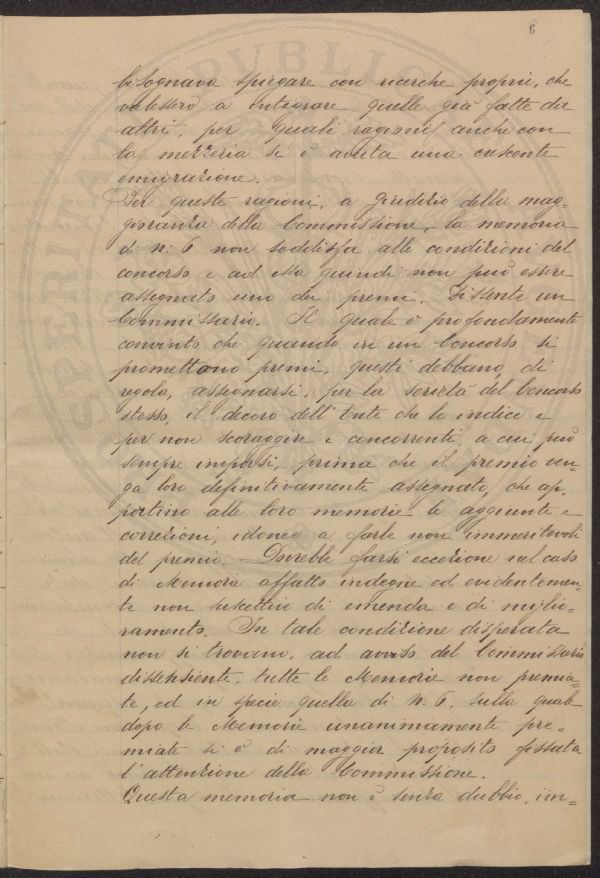 6
bisognava spiegare con ricerche proprie, che
valessero a integrare quelle già fatte da
altri, per quali ragioni anche con
la mezzeria si è avuta una crescente
emigrazione.
Per queste ragioni, a giudizio della mag-
gioranza della Commissione, la memoria
di N: 6 non soddisfa alle condizioni del
concorso e ad essa quindi non può essere
assegnato uno dei premi. Dissente un
Commissario. Il quale è profondamente
convinto che quando in un Concorso si
promettono premi, questi debbano, di
regola, assegnarsi, per la serietà del Concorso
stesso, il decoro dell'Ente che lo indice e
per non scoraggire i concorrenti, a cui può
sempre imporsi, prima che il premio ven-
ga loro definitivamente assegnato, che ap-
portino alle loro memorie le aggiunte e
correzioni, idonee a farle non immeritevoli
del premio. Dovrebbe farsi eccezione nel caso
di Memorie affatto indegne ed evidentemen-
te non suscettive di emenda e di miglio-
ramento. In tale condizione disperata
non si trovano, ad avviso del Commissario
dissensiente, tutte le Memorie non premia-
te, ed in specie quella di N: 6. sulla quale
dopo le Memorie unanimamente pre-
miate si è di maggior proposito fissata
l'attenzione della Commissione.
Questa memoria non è senza dubbio, im-
PROSPERITAS PVBLICA